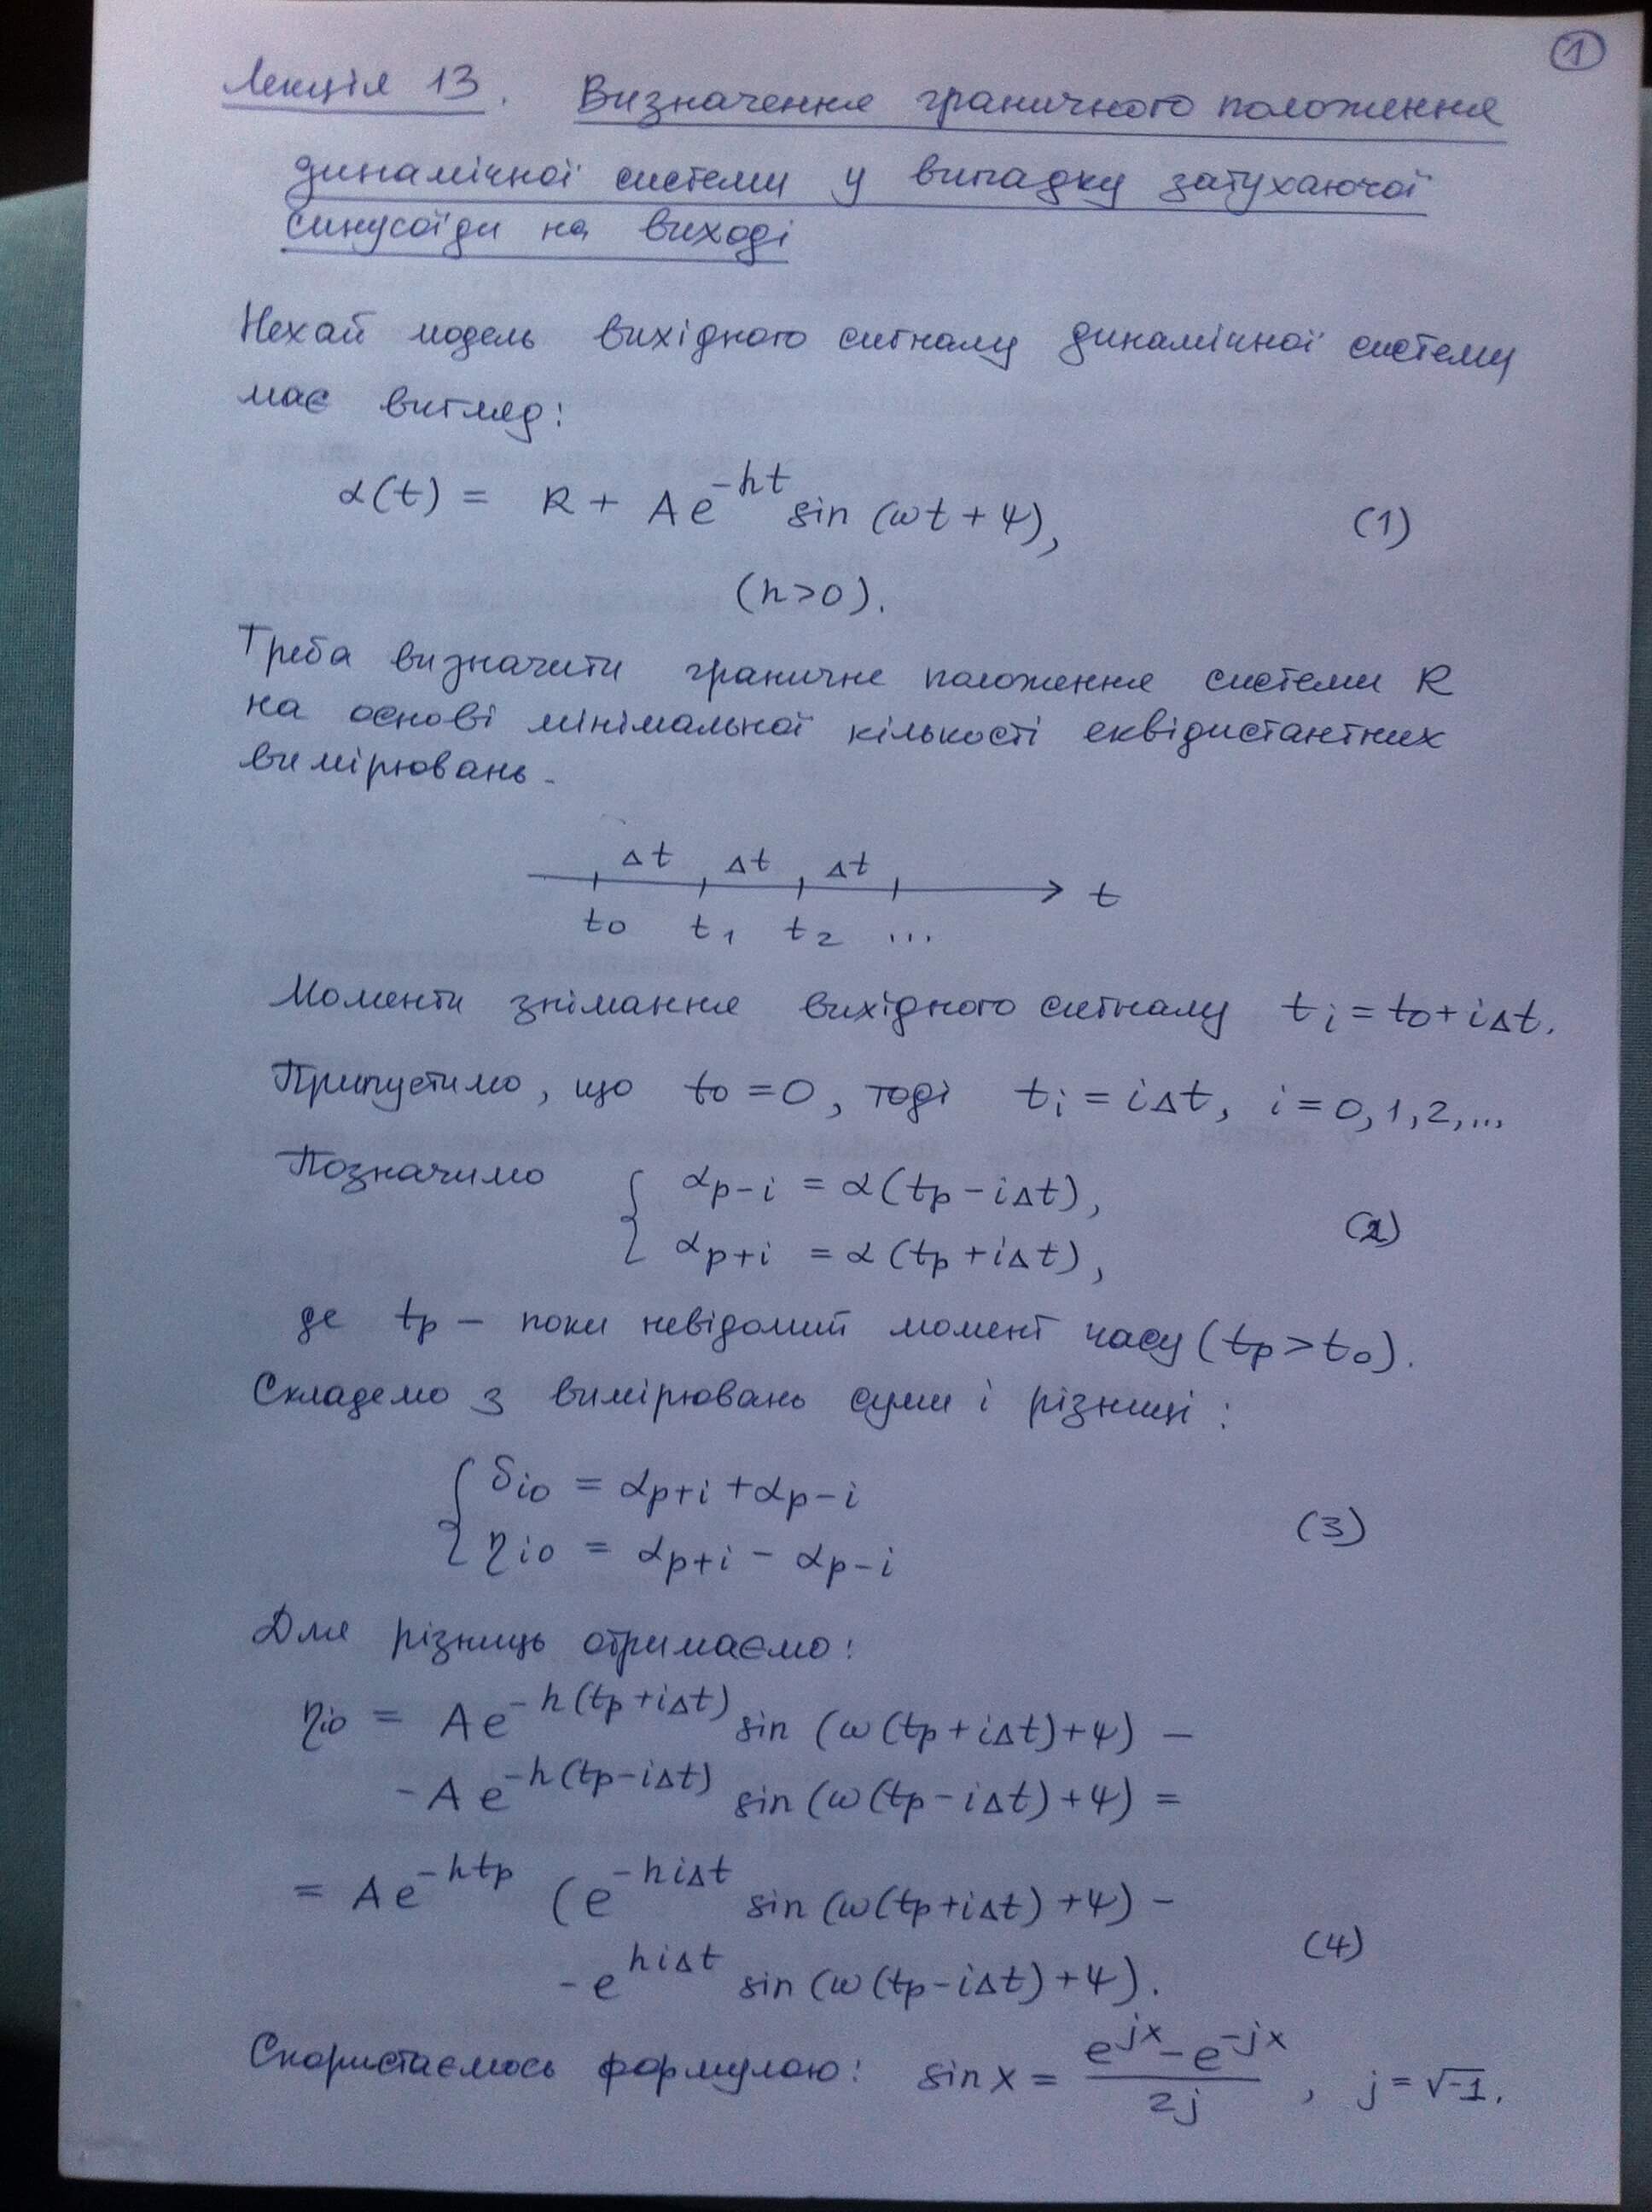 1
Лекція 13. Визначення граничного положення
динамічної системи у випадку затухаючої
синусоїди на виході
Нехай модель вихідного сигналу динамічної системи
має вигляд:
α(t) = R + Ae^{-ht} sin (ωt + ψ), (1)
(h>0).
Треба визначити граничне положення системи R
на основі мінімальної кількості еквідистантних
вимірювань.
Δt Δt Δt
t
t₀ t₁ t₂ ...
Моменти знімання вихідного сигналу tᵢ = t₀ + iΔt.
Припустимо, що t₀ = 0, тоді tᵢ = iΔt, i = 0, 1, 2, ...
Позначимо { α_{p-i} = α(t_p - iΔt),
α_{p+i} = α(t_p + iΔt), (2)
де t_p — поки невідомий момент часу (t_p > t₀).
Складемо з вимірювань суми і різниці:
{ δ_{i0} = α_{p+i} + α_{p-i}
η_{i0} = α_{p+i} - α_{p-i} (3)
Для різниць отримаємо:
η_{i0} = Ae^{-h(t_p+iΔt)} sin (ω(t_p+iΔt)+ψ) -
- Ae^{-h(t_p-iΔt)} sin (ω(t_p-iΔt)+ψ) =
= Ae^{-ht_p} (e^{-hiΔt} sin (ω(t_p+iΔt)+ψ) -
- e^{hiΔt} sin (ω(t_p-iΔt)+ψ). (4)
Скористаємось формулою: sin x = \frac{e^{jx} - e^{-jx}}{2j}, j = √-1.